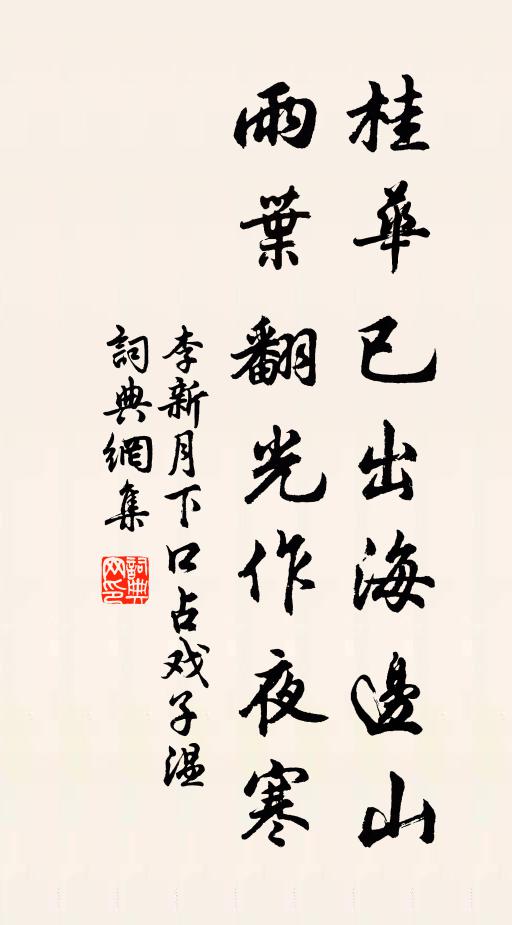 桂華已出海邊山
雨葉翻光作夜寒
李新月下口占戏子溫
詞典網集
詞典网印